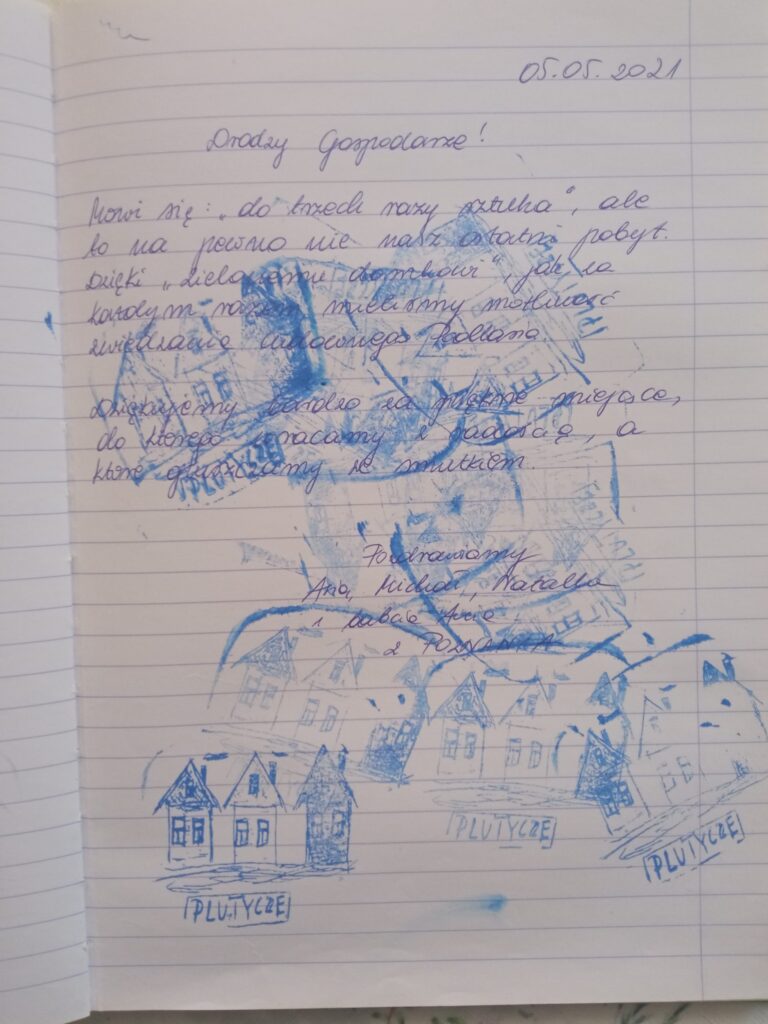 05.05.2021
Drodzy Gospodarze!
Mówi się: „do trzech razy sztuka", ale
to na pewno nie nasz ostatni pobyt.
Dzięki „Zielonemu domkowi", jak za
każdym razem mieliśmy możliwość
zwiedzania cudownego Podlasia.
Dziękujemy bardzo za piękne miejsce,
do którego wracamy z radością, a
które opuszczamy ze smutkiem.
Pozdrawiamy
Ania, Michał, Natalka
i babcia Ania
z POZNANIA
PLUTYCZE
PLUTYCZE
PLUTYCZE
PLUTYCZE